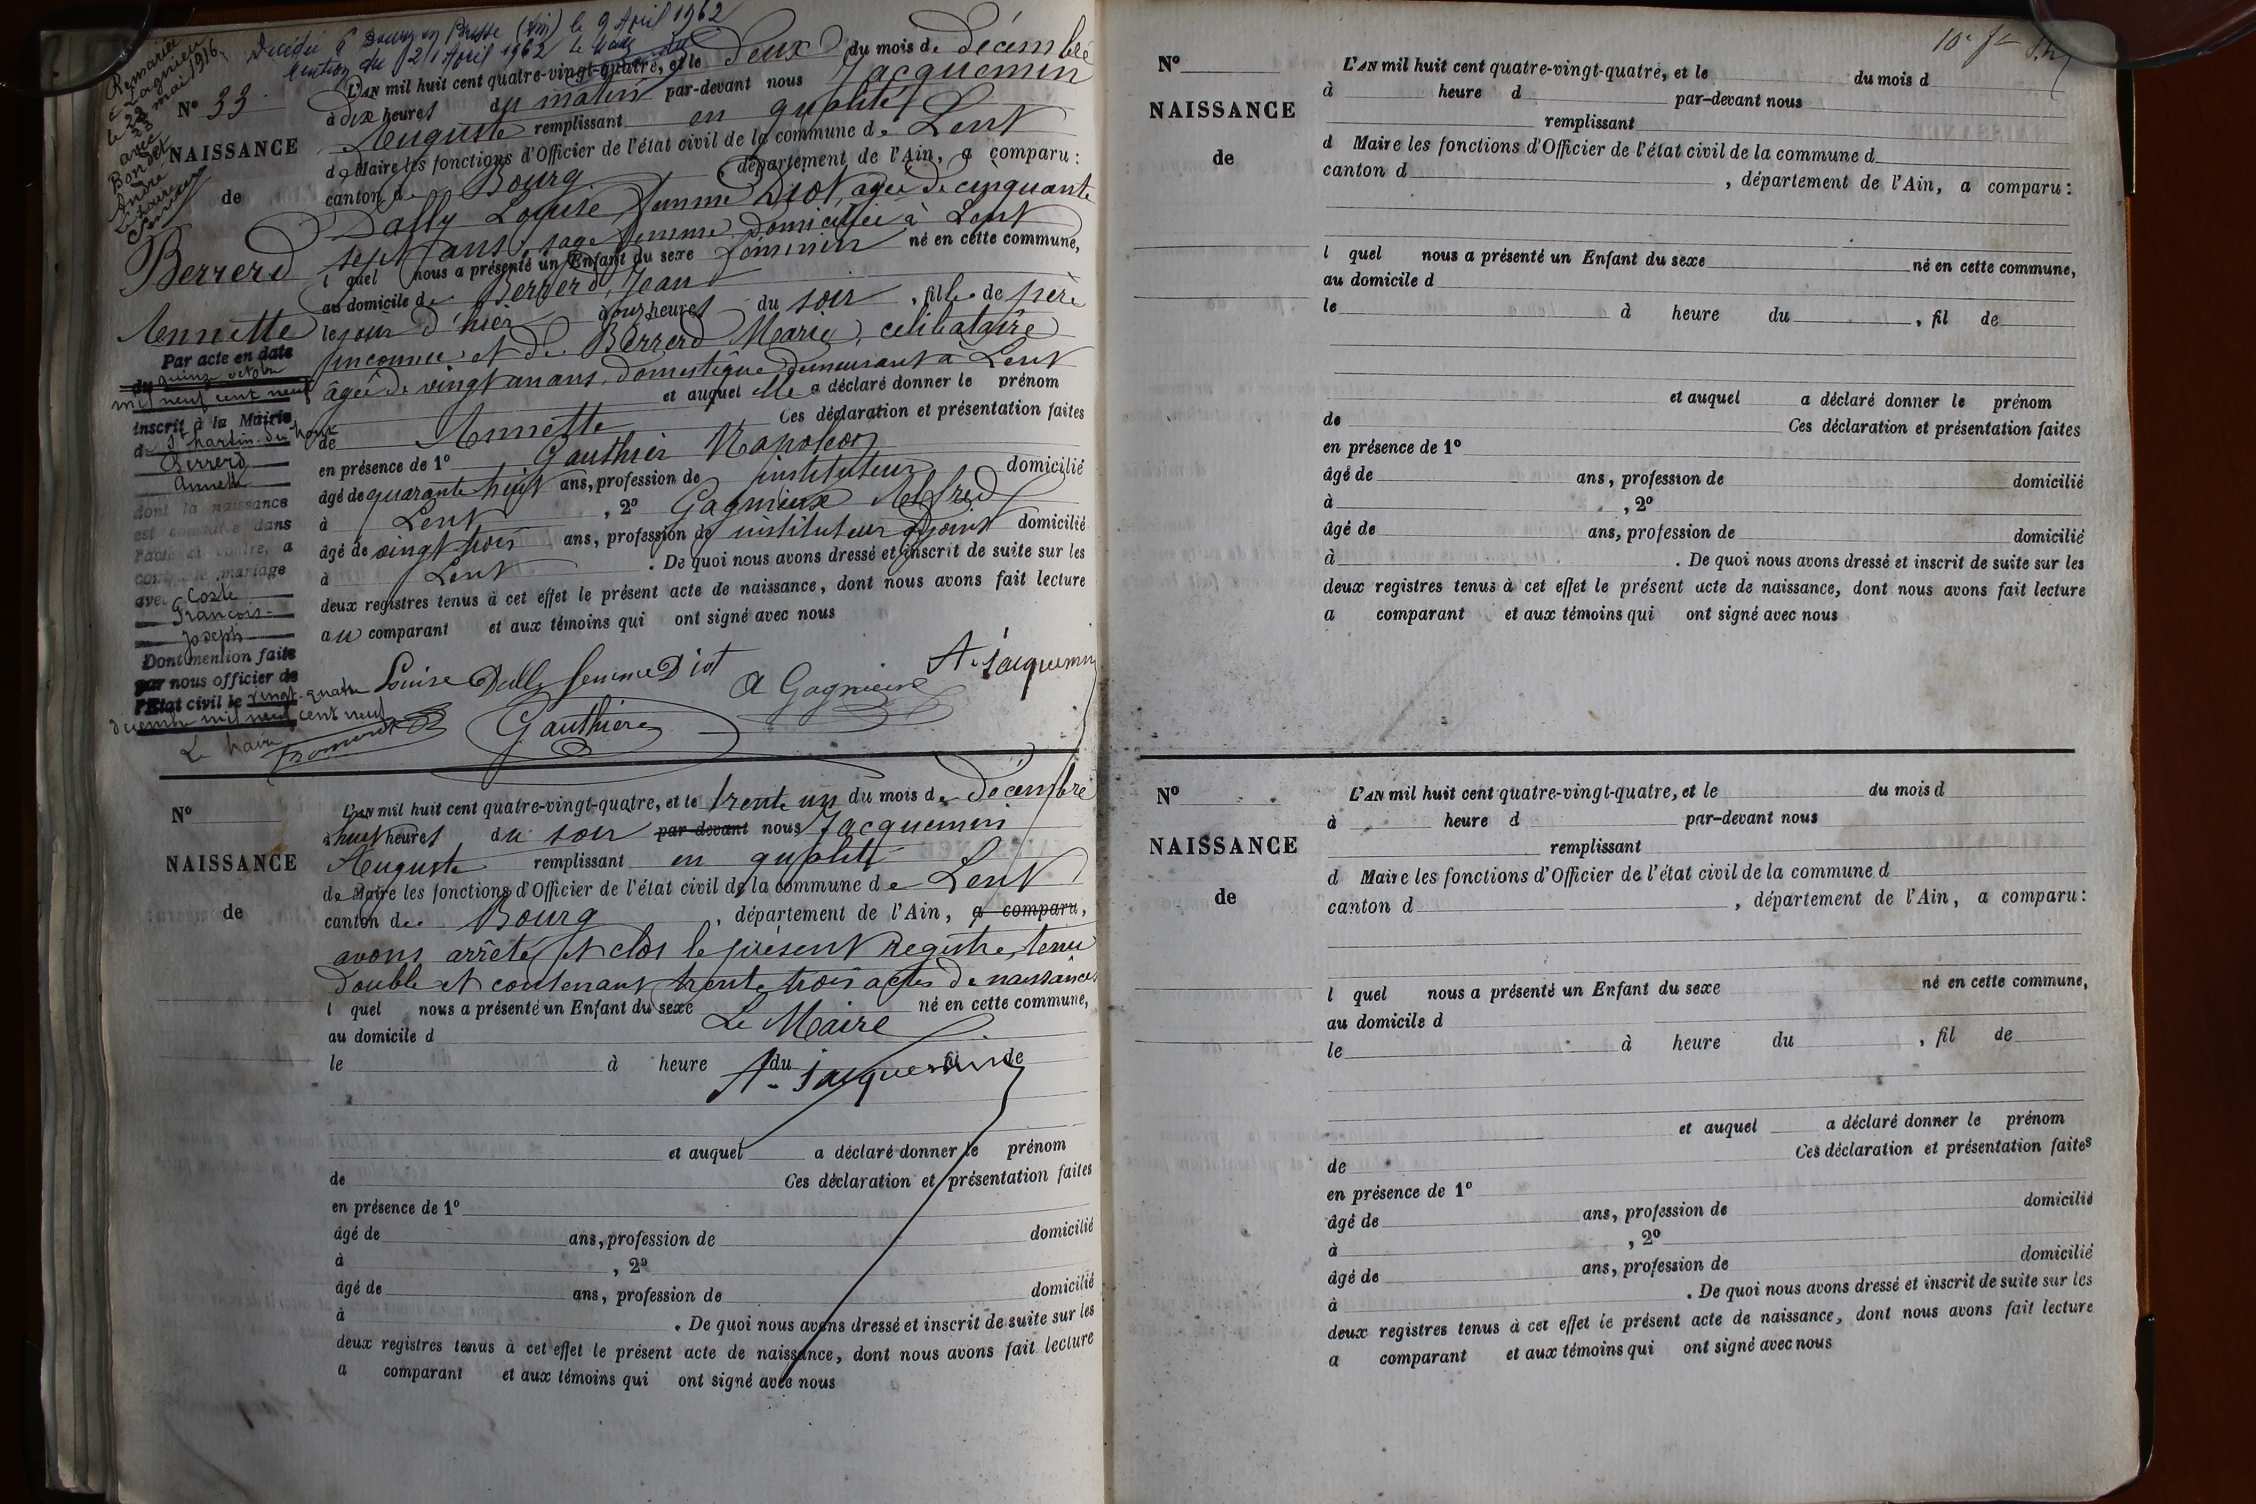 Décédée à Bourg en Bresse (Ain) le 9 Avril 1962
Mention du 12 Avril 1962 le
Remariée
à Lagnieu
le 23 mai 1916
avec
Bondet
André
N° 33
NAISSANCE
de
Berrerd
Annette
Par acte en date
du quinze octobre
mil neuf cent neuf
inscrit à la Mairie
de St Martin-du-Mont
Berrerd
Annette
dont la naissance
est constatée dans
l'acte ci contre, a
contracté mariage
avec Coste
François-
Joseph
Dont mention faite
par nous officier de
l'Etat civil le vingt-quatre
décembre mil neuf cent neuf
Le Maire
L'AN mil huit cent quatre-vingt-quatre, et le deux du mois de décembre
à dix heures du matin par-devant nous Jacquemin
Auguste remplissant en qualité
de Maire les fonctions d'Officier de l'état civil de la commune de Lent
canton de Bourg, département de l'Ain, a comparu :
Dally Louise femme Diot, agée de cinquante
sept ans, sage femme domiciliée à Lent
l quel nous a présenté un Enfant du sexe féminin né en cette commune,
au domicile de Berrerd Jean
le jour d'hier à onze heures du soir, fille de père
inconnu et de Berrerd Marie, célibataire
âgée de vingt un ans, domestique demeurant à Lent
et auquel elle a déclaré donner le prénom
de Annette Ces déclaration et présentation faites
en présence de 1° Gauthier Napoléon
âgé de quarante huit ans, profession de instituteur domicilié
à Lent, 2° Gagnieux Alfred
âgé de vingt trois ans, profession de instituteur adjoint domicilié
à Lent. De quoi nous avons dressé et inscrit de suite sur les
deux registres tenus à cet effet le présent acte de naissance, dont nous avons fait lecture
au comparant et aux témoins qui ont signé avec nous
Louise Dally femme Diot A Gagnieux A. Jacquemin
Gauthier
N°
NAISSANCE
de
L'AN mil huit cent quatre-vingt-quatre, et le trente un du mois de décembre
à huit heures du soir par-devant nous Jacquemin
Auguste remplissant en qualité
de Maire les fonctions d'Officier de l'état civil de la commune de Lent
canton de Bourg, département de l'Ain, a comparu,
avons arrêté et clos le présent registre, tenu
double et contenant trente trois actes de naissances
l quel nous a présenté un Enfant du sexe né en cette commune,
Le Maire
au domicile d
le à heure du fil de
A. Jacquemin
et auquel a déclaré donner le prénom
de Ces déclaration et présentation faites
en présence de 1°
âgé de ans, profession de domicilié
à , 2°
âgé de ans, profession de domicilié
à . De quoi nous avons dressé et inscrit de suite sur les
deux registres tenus à cet effet le présent acte de naissance, dont nous avons fait lecture
a comparant et aux témoins qui ont signé avec nous
N°
NAISSANCE
de
L'AN mil huit cent quatre-vingt-quatre, et le du mois d
à heure d par-devant nous
remplissant
d Maire les fonctions d'Officier de l'état civil de la commune d
canton d , département de l'Ain, a comparu :
l quel nous a présenté un Enfant du sexe né en cette commune,
au domicile d
le à heure du , fil de
et auquel a déclaré donner le prénom
de Ces déclaration et présentation faites
en présence de 1°
âgé de ans, profession de domicilié
à , 2°
âgé de ans, profession de domicilié
à . De quoi nous avons dressé et inscrit de suite sur les
deux registres tenus à cet effet le présent acte de naissance, dont nous avons fait lecture
a comparant et aux témoins qui ont signé avec nous
N°
NAISSANCE
de
L'AN mil huit cent quatre-vingt-quatre, et le du mois d
à heure d par-devant nous
remplissant
d Maire les fonctions d'Officier de l'état civil de la commune d
canton d , département de l'Ain, a comparu :
l quel nous a présenté un Enfant du sexe né en cette commune,
au domicile d
le à heure du , fil de
et auquel a déclaré donner le prénom
de Ces déclaration et présentation faites
en présence de 1°
âgé de ans, profession de domicilié
à , 2°
âgé de ans, profession de domicilié
à . De quoi nous avons dressé et inscrit de suite sur les
deux registres tenus à cet effet le présent acte de naissance, dont nous avons fait lecture
a comparant et aux témoins qui ont signé avec nous